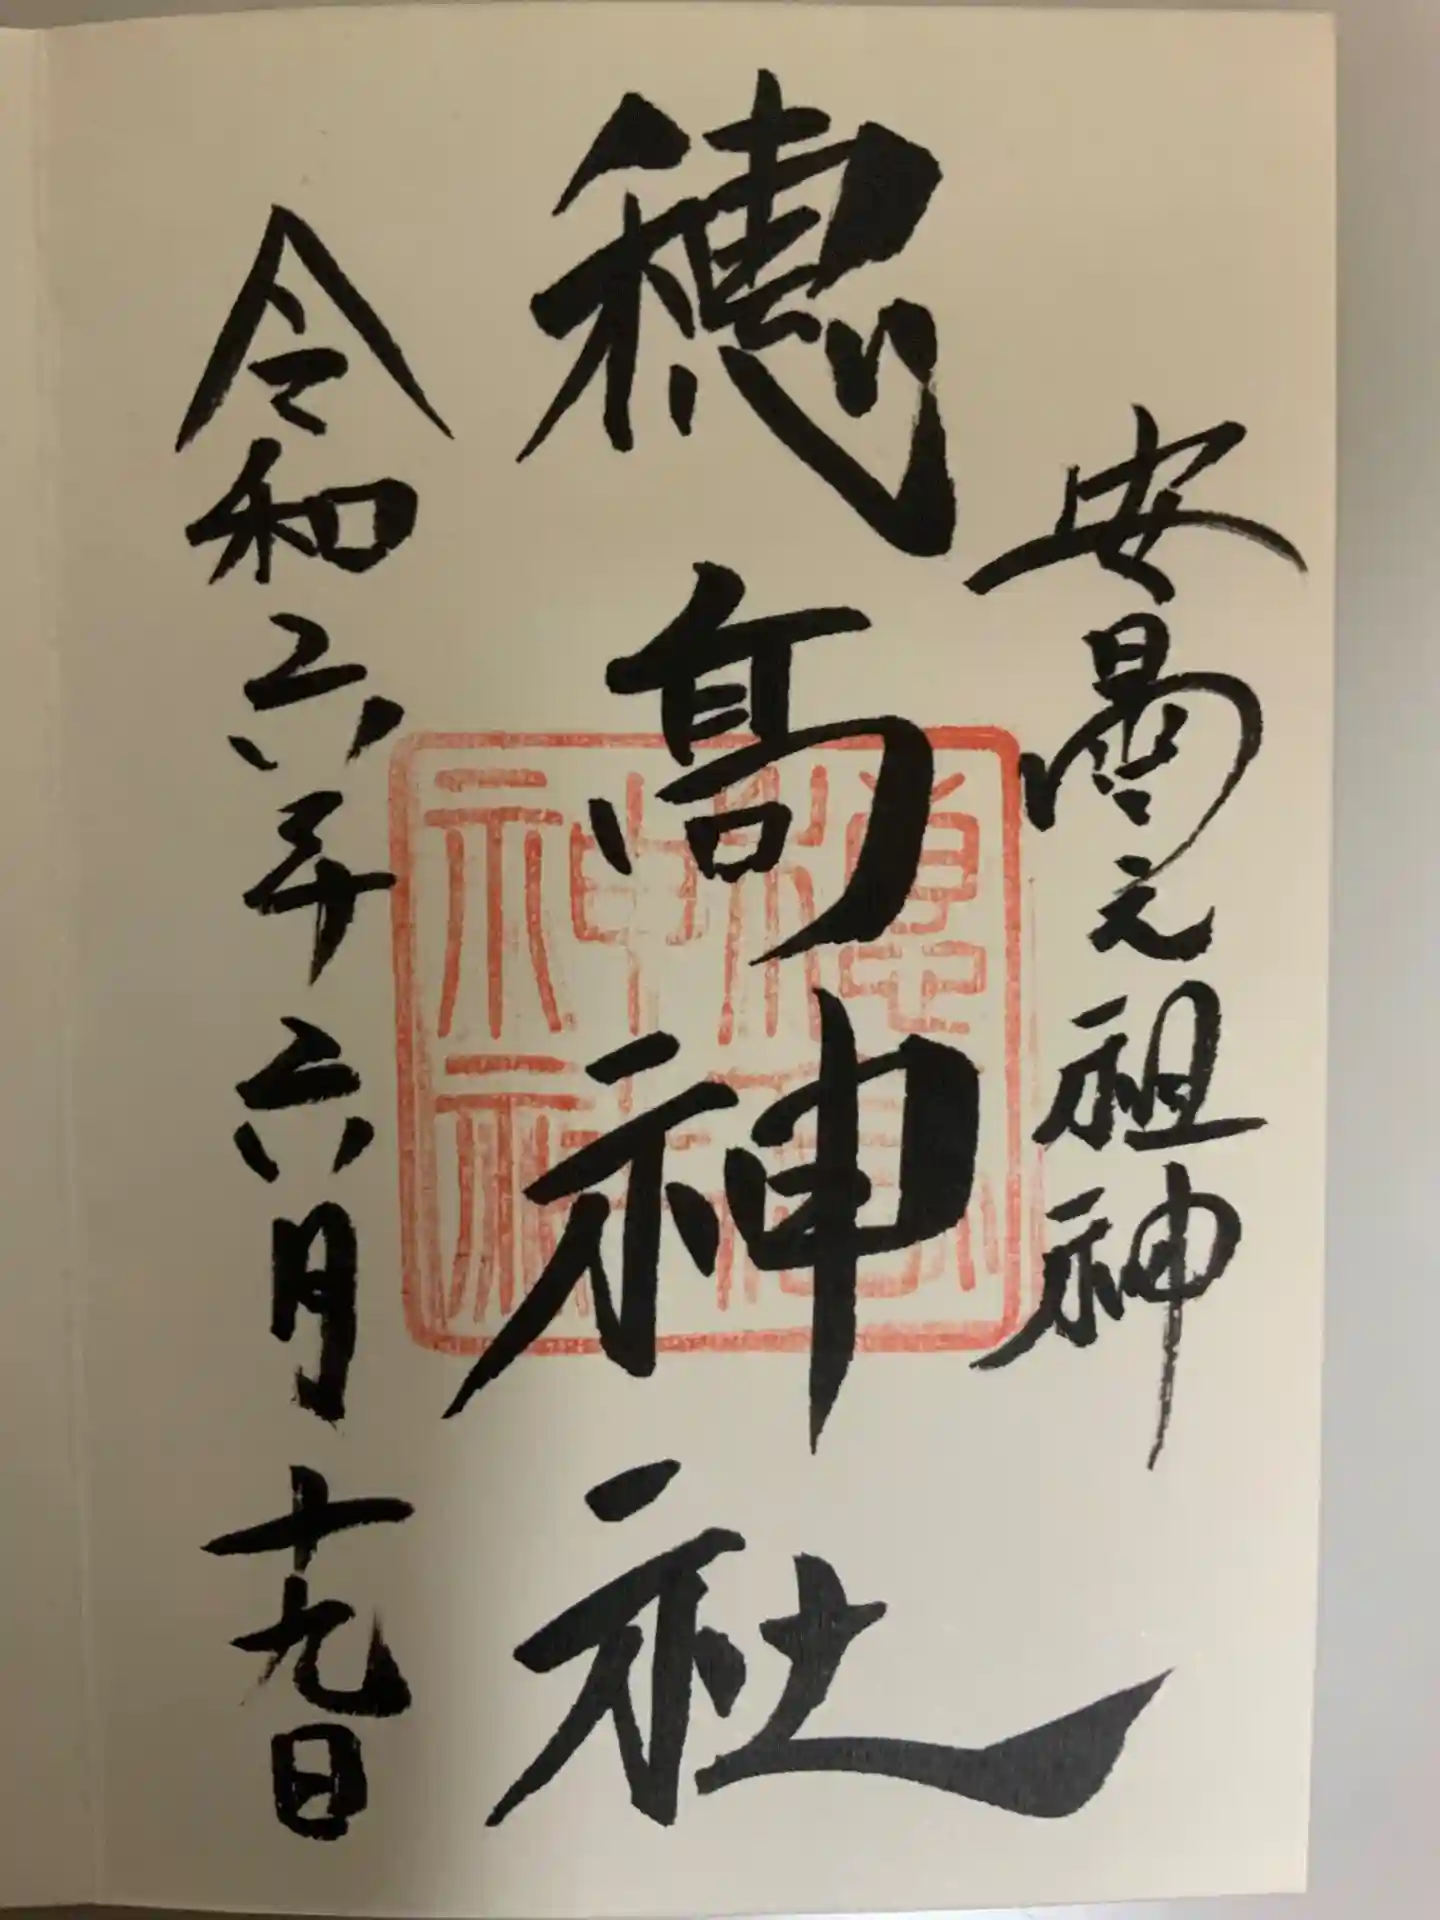 安曇之祖神
穂高神社
令和六年六月十九日
穂高神社